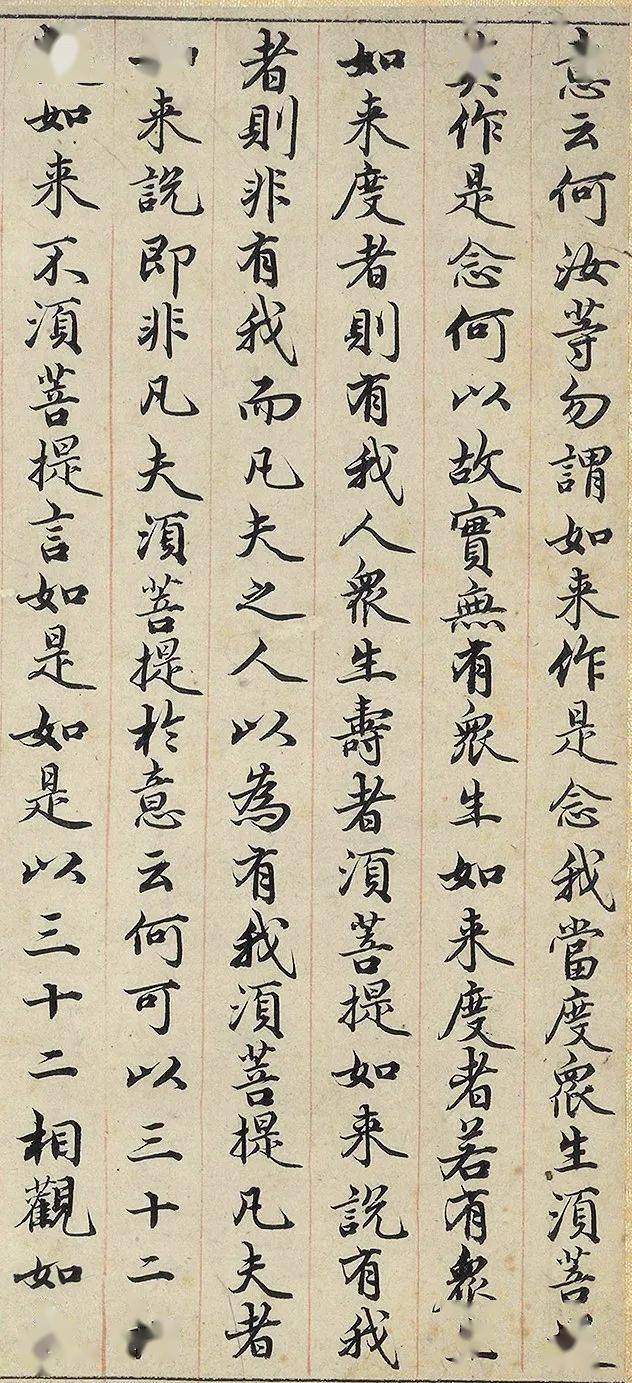 意云何汝等勿謂如来作是念我當度衆生須菩
作是念何以故實無有衆生如来度者若有衆
如来度者則有我人衆生壽者須菩提如来說有我
者則非有我而凡夫之人以為有我須菩提凡夫者
来說即非凡夫須菩提於意云何可以三十二
如来不須菩提言如是如是以三十二相觀如